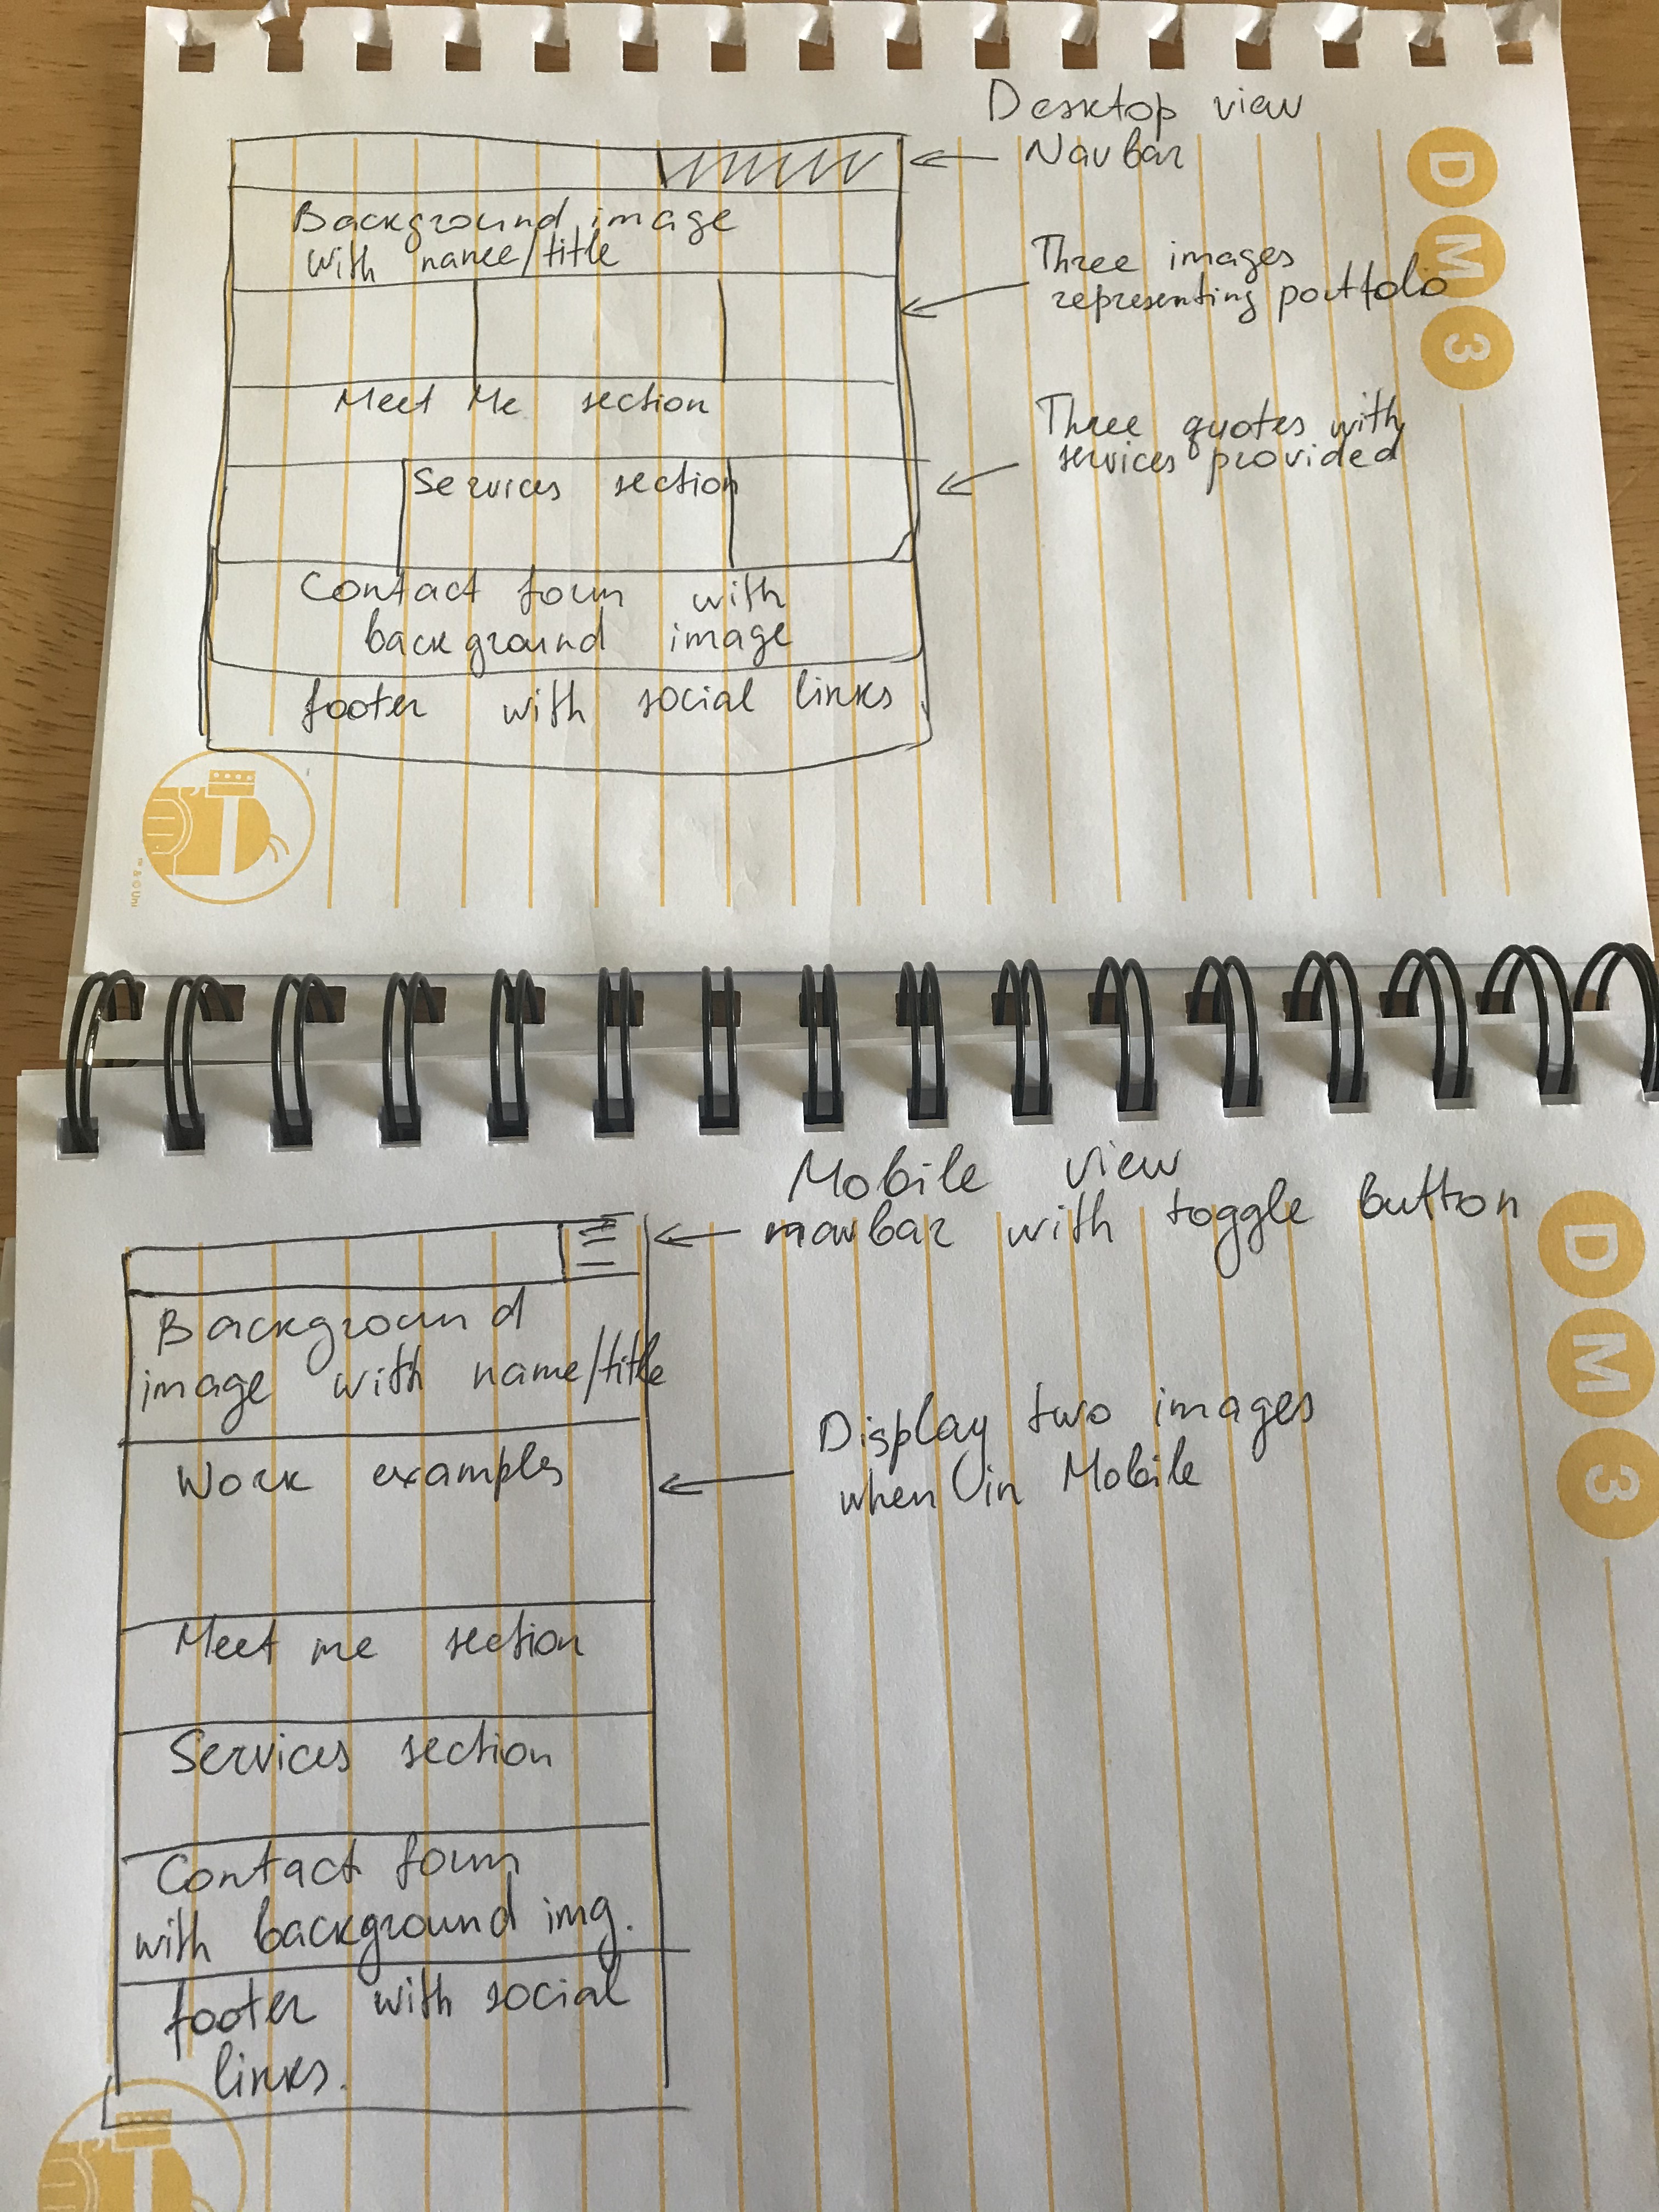 Desktop view
Navbar
Background image
with name/title
Three images
representing portfolio
Meet Me section
Three quotes with
services provided
Services section
Contact form with
background image
footer with social links
DM3
™ & © Uni
Mobile view
navbar with toggle button
Background
image with name/title
Display two images
when in Mobile
Work examples
Meet me section
Services section
Contact form
with background img.
footer with social
links.
DM3